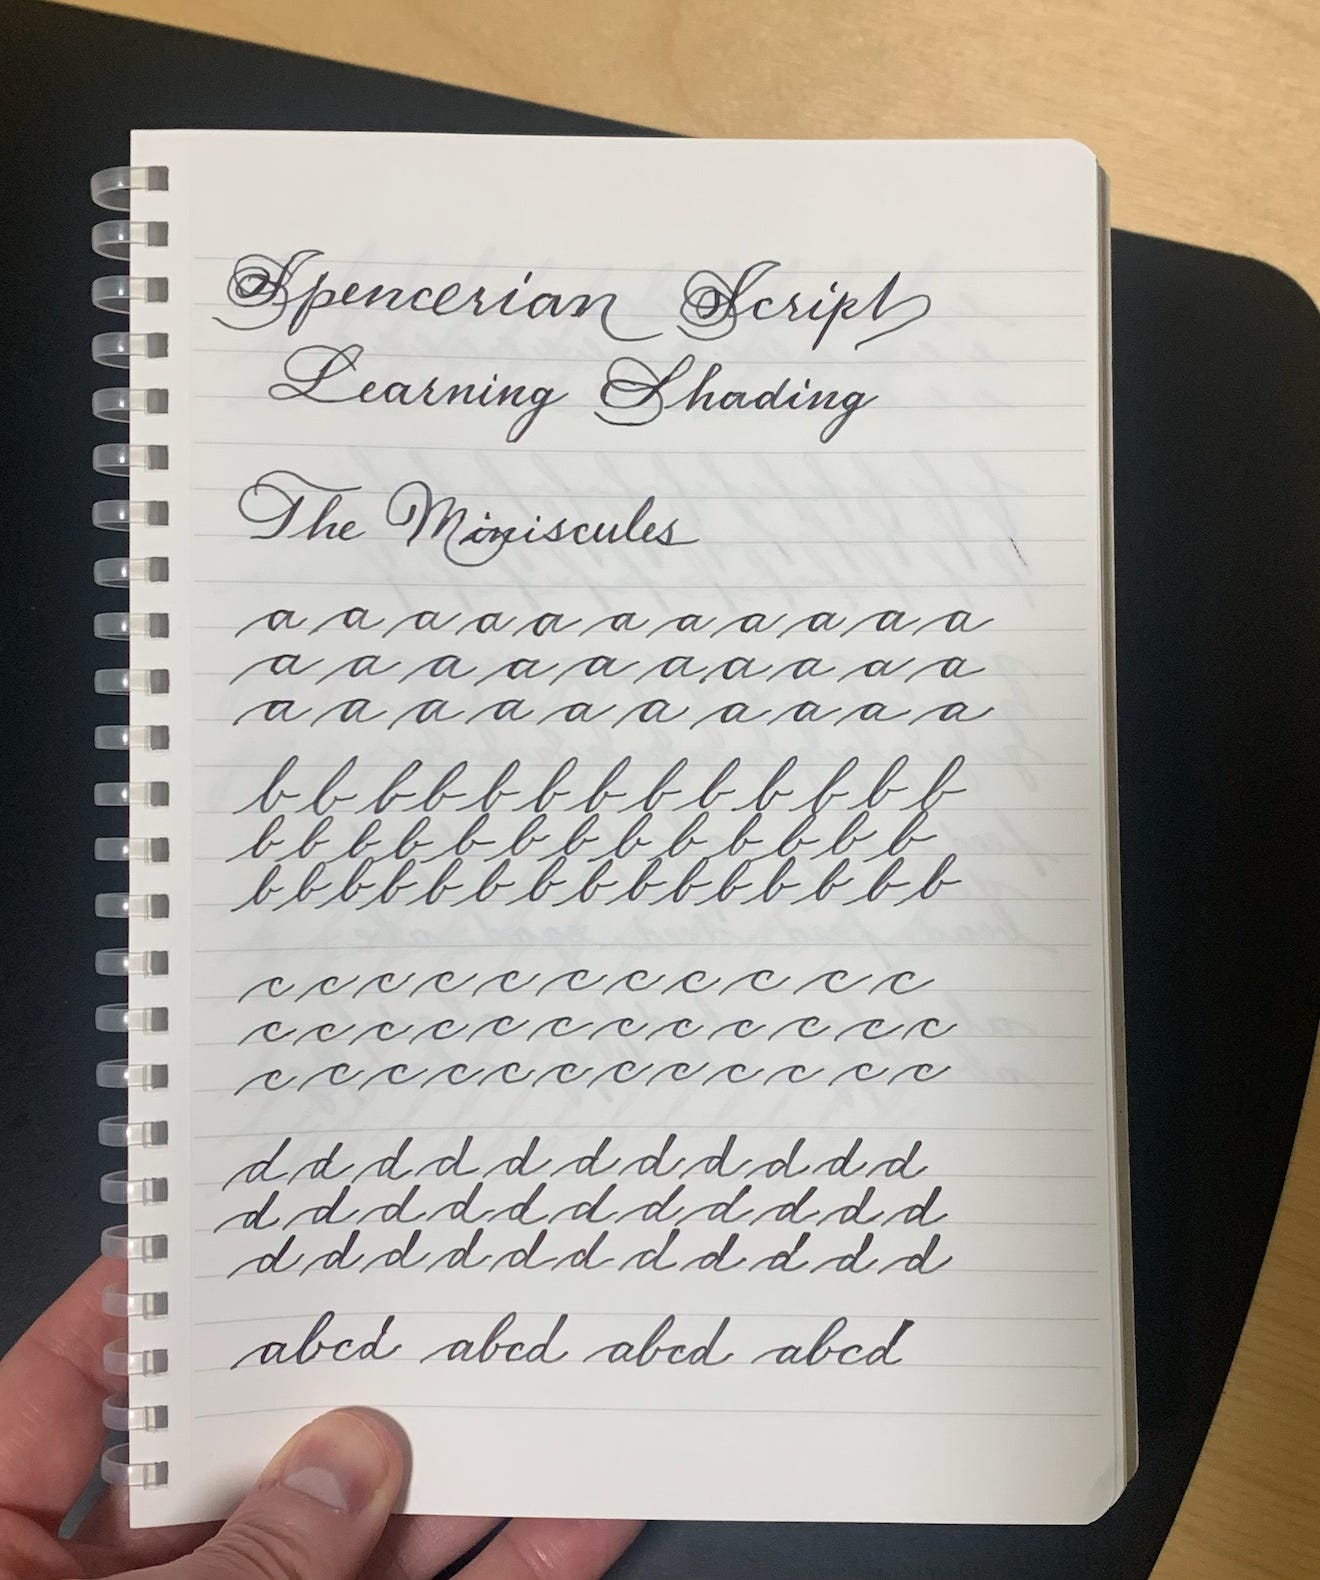 Spencerian Script
Learning Shading
The Miniscules
a a a a a a a a a a a
a a a a a a a a a a a
a a a a a a a a a a
b b b b b b b b b b b b b
b b b b b b b b b b b b b
b b b b b b b b b b b b b b b
c c c c c c c c c c c
c c c c c c c c c c c c
c c c c c c c c c c c c
d d d d d d d d d d d
d d d d d d d d d d d
d d d d d d d d d d d
abcd abcd abcd abcd